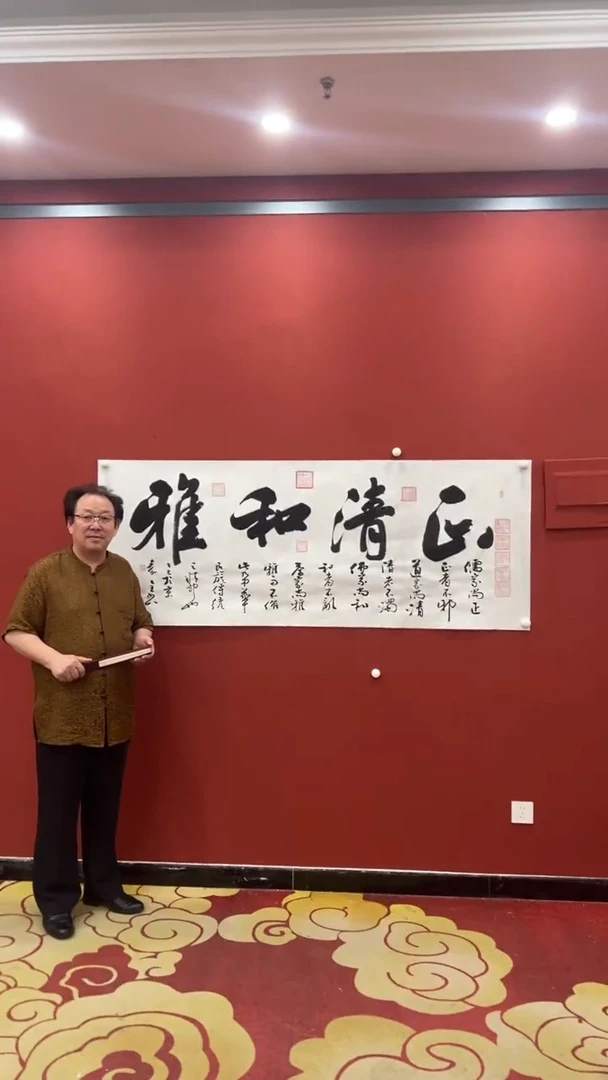 正清和雅
儒家尚正
正者不邪
道家尚清
清者不濁
佛家尚和
和者不亂
茶家尚雅
雅而不俗
民族傳統